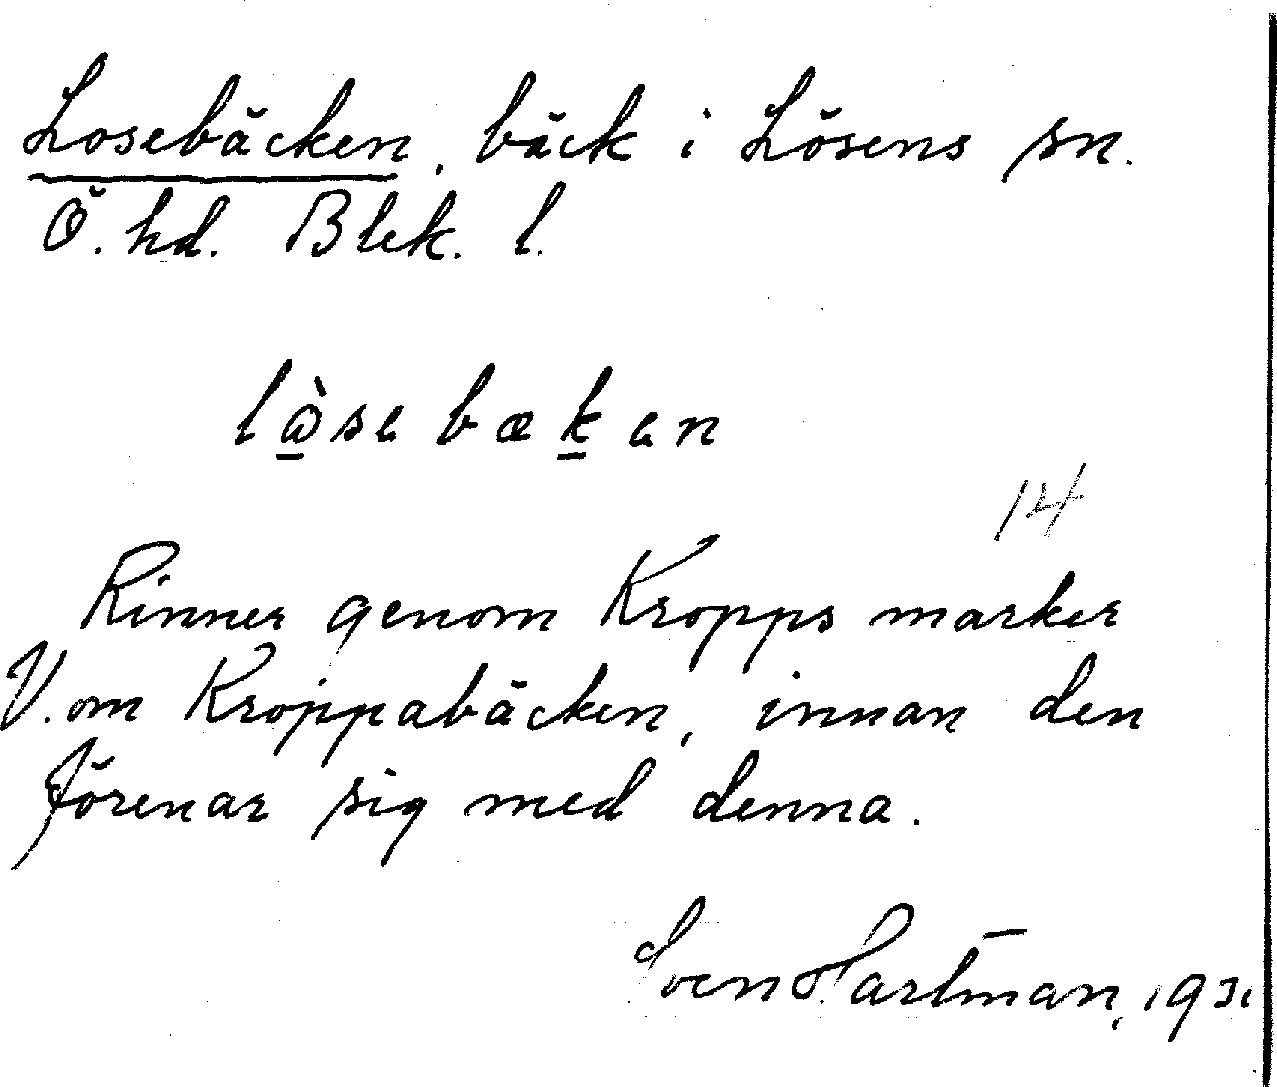 Losebäcken, bäck i Lösens sn.
Ö. hd. Blek. l.
lòsebækən
14
Rinner genom Kropps marker
V. om Kroppabäcken, innan den
förenar sig med denna.
Sven Hartman, 1931